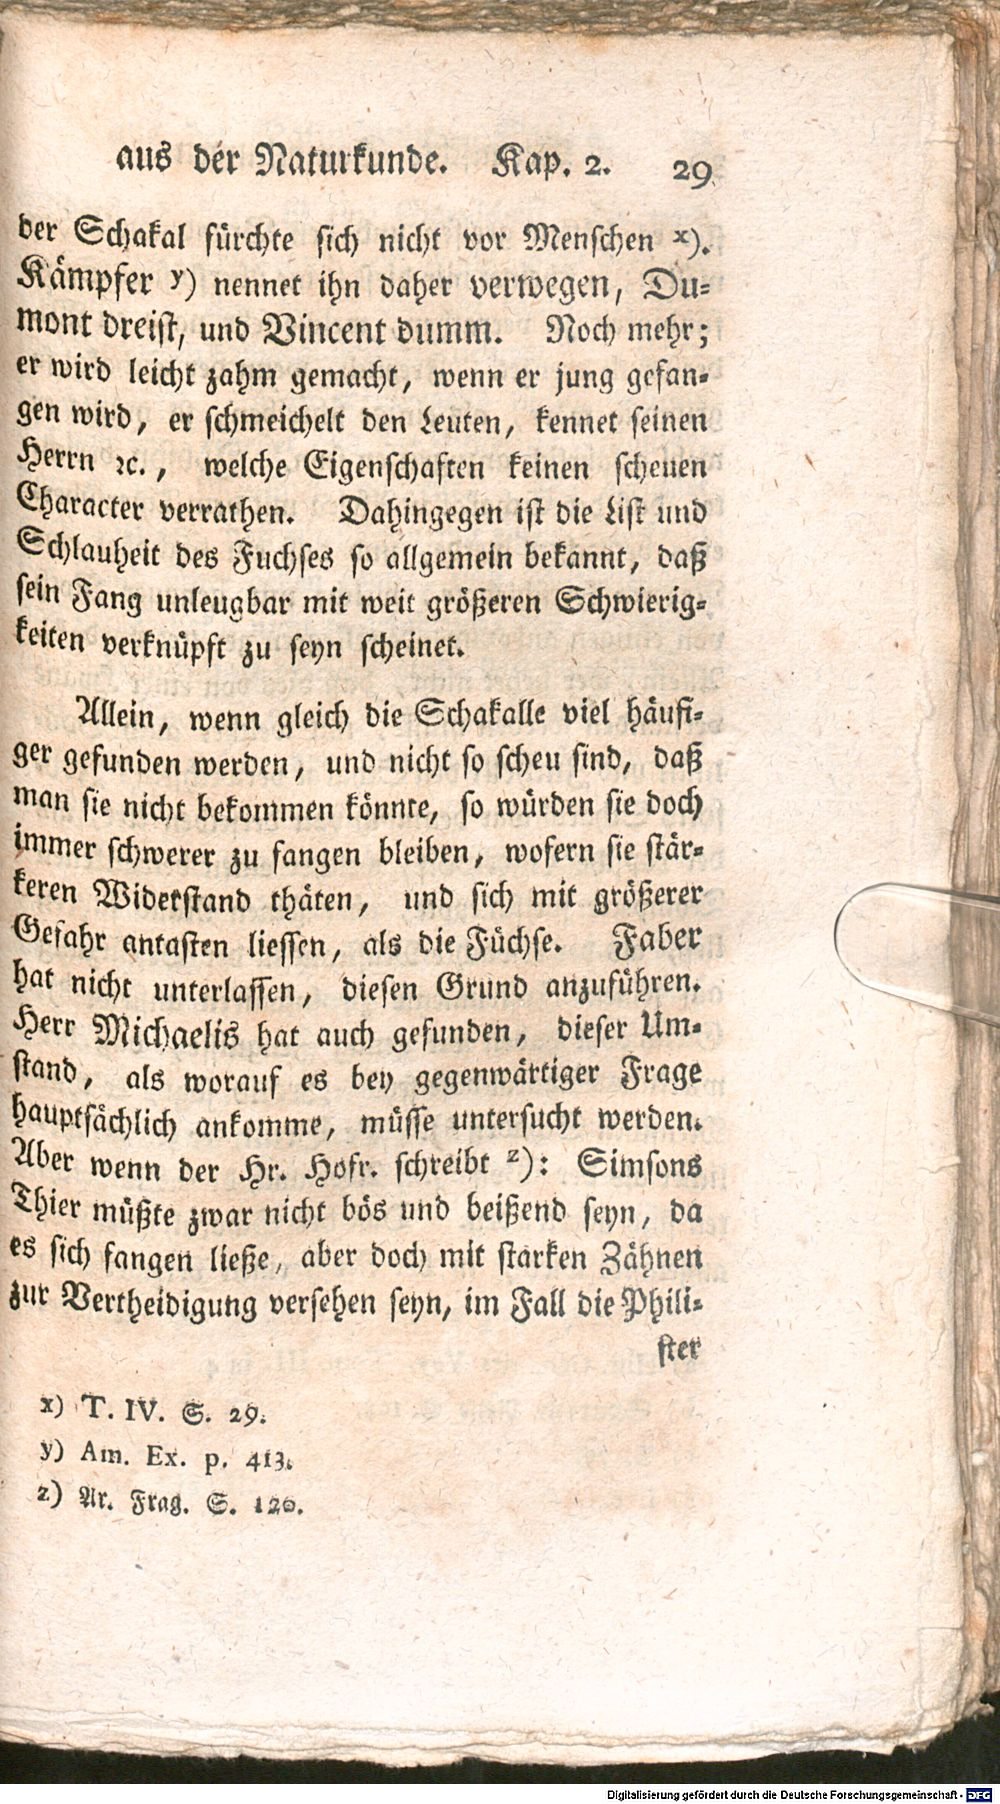 aus der Naturkunde. Kap. 2. 29
der Schakal fürchte sich nicht vor Menschen x).
Kämpfer y) nennet ihn daher verwegen, Du-
mont dreist, und Vincent dumm. Noch mehr;
er wird leicht zahm gemacht, wenn er jung gefan-
gen wird, er schmeichelt den Leuten, kennet seinen
Herrn ꝛc., welche Eigenschaften keinen scheuen
Character verrathen. Dahingegen ist die List und
Schlauheit des Fuchses so allgemein bekannt, daß
sein Fang unleugbar mit weit größeren Schwierig-
keiten verknüpft zu seyn scheinet.
Allein, wenn gleich die Schakalle viel häufi-
ger gefunden werden, und nicht so scheu sind, daß
man sie nicht bekommen könnte, so würden sie doch
immer schwerer zu fangen bleiben, wofern sie stär-
keren Widerstand thäten, und sich mit größerer
Gefahr antasten liessen, als die Füchse. Faber
hat nicht unterlassen, diesen Grund anzuführen.
Herr Michaelis hat auch gefunden, dieser Um-
stand, als worauf es bey gegenwärtiger Frage
hauptsächlich ankomme, müsse untersucht werden.
Aber wenn der Hr. Hofr. schreibt z): Simsons
Thier müßte zwar nicht bös und beißend seyn, da
es sich fangen ließe, aber doch mit starken Zähnen
zur Vertheidigung versehen seyn, im Fall die Phili-
ster
x) T. IV. S. 29.
y) Am. Ex. p. 413.
z) Ar. Frag. S. 120.
Digitalisierung gefördert durch die Deutsche Forschungsgemeinschaft - DFG